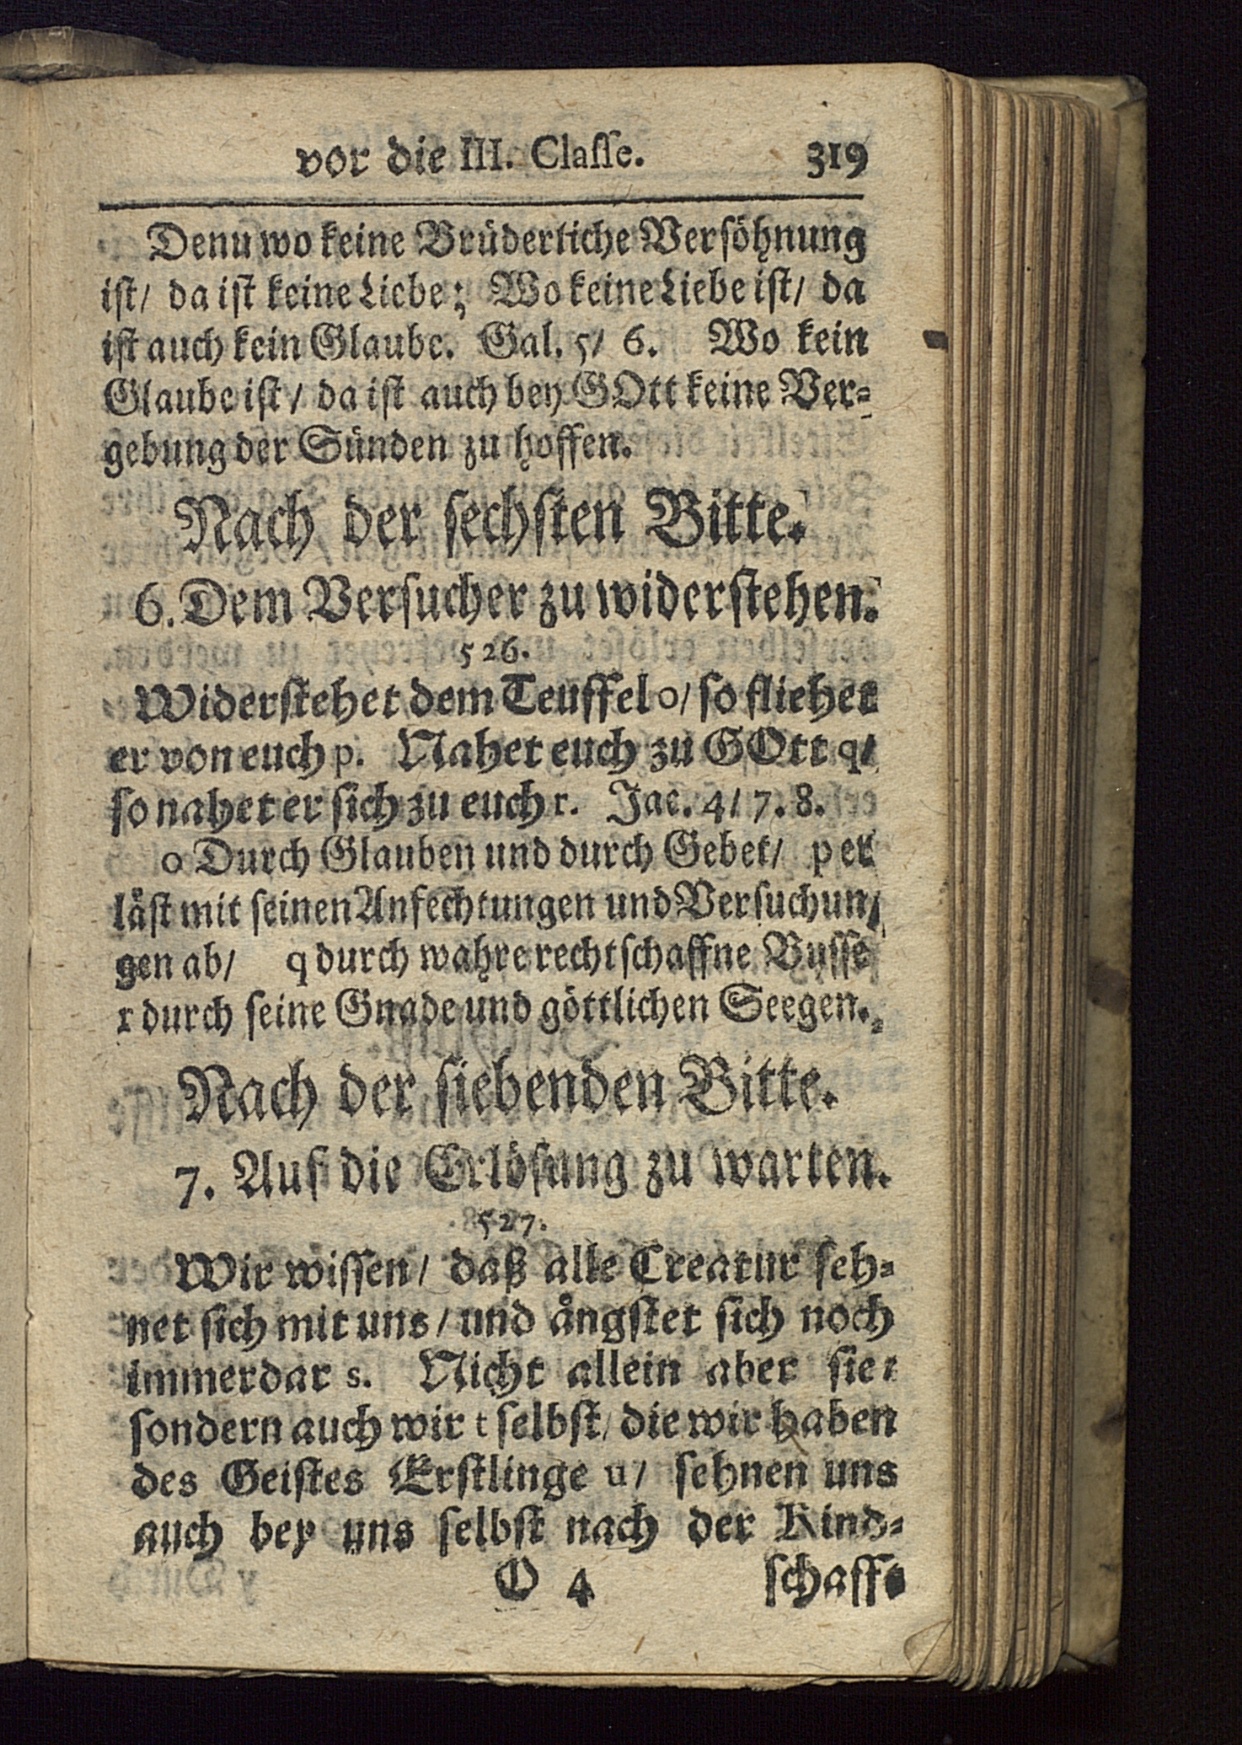 vor die III. Classe. 319
Denu wo keine Brüderliche Versöhnung
ist/ da ist keine Liebe; Wo keine Liebe ist/ da
ist auch kein Glaube. Gal. 5/ 6. Wo kein
Glaube ist/ da ist auch bey GOtt keine Ver=
gebung der Sünden zu hoffen.
Nach der sechsten Bitte.
6. Dem Versucher zu widerstehen.
526.
Widerstehet dem Teuffel o/ so fliehet
er von euch p. Nahet euch zu GOtt q/
so nahet er sich zu euch r. Jac. 4/ 7. 8.
o Durch Glauben und durch Gebet/ p er
läst mit seinen Anfechtungen und Versuchun/
gen ab/ q durch wahre rechtschaffne Busse
r durch seine Gnade und göttlichen Seegen.
Nach der siebenden Bitte.
7. Auf die Erlösung zu warten.
527.
Wir wissen/ daß alle Creatur seh=
net sich mit uns/ und ängstet sich noch
immerdar s. Nicht allein aber sie/
sondern auch wir t selbst/ die wir haben
des Geistes Erstlinge u/ sehnen uns
auch bey uns selbst nach der Kind=
O 4 schafft